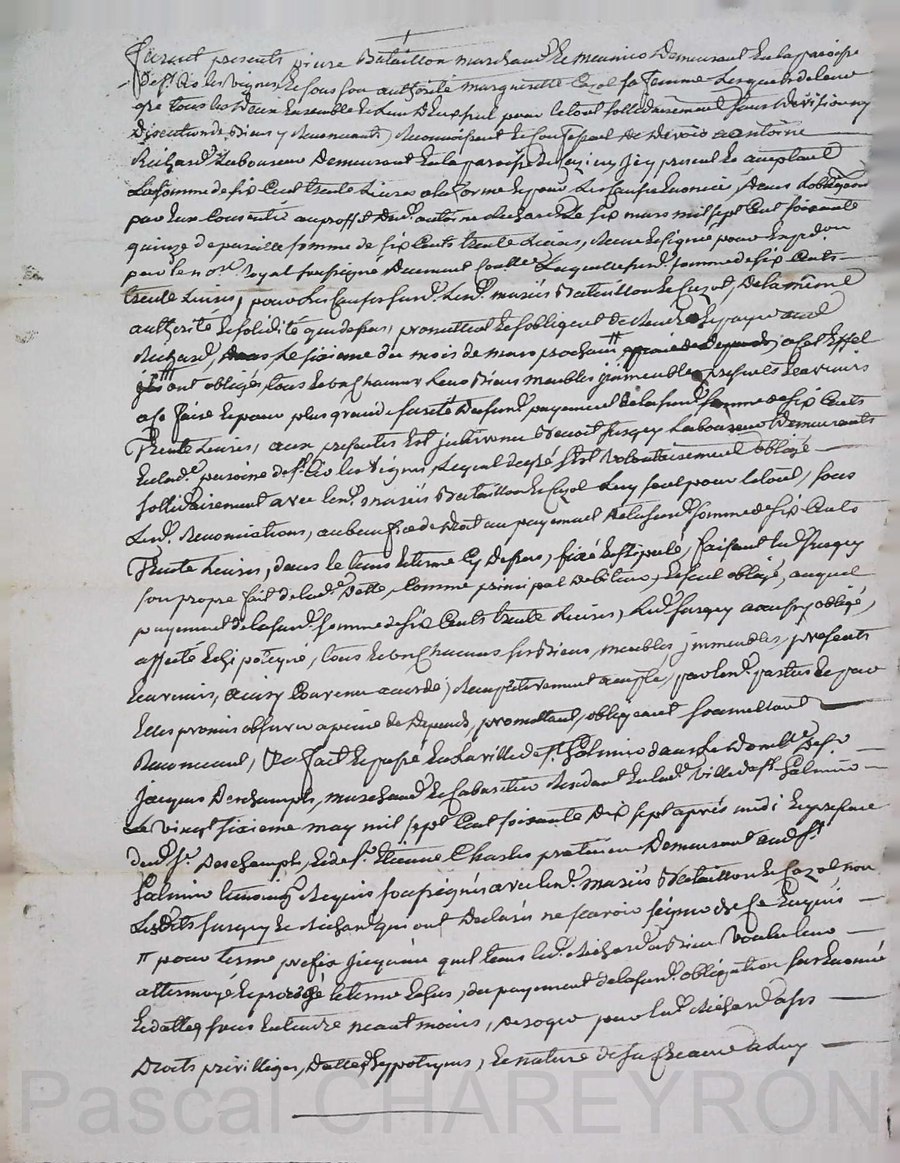 furent presents pierre Bataillon marchand et meunier Demeurant en la paroisse
De st Cir les vignes, et sous son authorité marguerite Cazol sa femme Lesquels de leur
gré tous les deux Ensemble et L'un D'eux seul pour le tout sollidairement sans Division ny
Discution de Biens y Renoncants, Reconnoissent et Confessent de Devoir a antoine
Richard Laboureur Demeurant en la paroisse de icy present et acceptant
La somme de six Cent trente Livres a la forme et pour Les Causes Enoncés, Dans L'obligation
par Eux Consentie au proffit Dud. antoine Richard Le six mars mil sept Cent soixante
quinze de pareille somme de six Cents trente Livres, Receue et signée pour
par le nore Royal soussigné Duement Laquelle susd. somme de six Cents
trente Livres, pour Les Causes susd. Lesd. mariés Bataillon et Cazol, De la même
authorité et solidité que dessus, promettent et s'obligent de Rendre et payer aud.
Richard, Le sixieme du mois de mars prochain a peine de Depends, a Cet Effet
ils ont obligés, tous et un Chacun Leurs Biens meubles immeubles, presents et avenirs
a Ce faire et pour plus grande sureté Dusud. payement De la susd. somme de six Cents
Trente Livres, aux presentes Est intervenu Benoit Laboureur Demeurants
En lad. paroisse de st Cir les vignes, Lequel de gré s'est volontairement obligé
sollidairement avec lesd. mariés Bataillon et Cazol Luy seul pour le tout, sous
Lesd. Renonciations, au benefice de Droit au payement De la susd. somme de six Cents
Trente Livres, dans le tems et terme Cy Dessus, fixé et stipulé, faisant led.
son propre fait de lad. Dette, Comme principal Debiteur, et seul obligé, auquel
payement de la susd. somme de six Cents trente Livres, led. a aussy obligé,
affecté et hipotequé, tous et un Chacuns ses Biens, meubles immeubles, presents
et avenirs, ainsy Convenu accordé, Reciproquement accepté, par lesd. parties et par
Elles promis observer a peine de Depends, promettant, obligeant soumettant
Renoncant, &a fait et passé En La ville de st Galmier dans Le Domlle De sr
Jacques Deschamps, marchand et Cabaretier Residant En lad. ville de st Galmier
Le vingt sixieme may mil sept Cent soixante Dix sept après midi En presence
dud. sr Deschamps, et de sr Etienne Charles praticien Demeurant aud. st
Galmier temoins Requis soussignés avec lesd. mariés Bataillon et Cazol non
Lesdits et Richard qui ont Declarés ne scavoir signer de Ce Enquis
# pour terme prefix jusqu'au quel tems led. Richard a Bien voulu leur
attermoyé et prorogé le terme Echus, du payement de la susd. obligation sus Enoncée
et dattée, sans Entendre neantmoins, Deroger par led. Richard a ses
Droits privilleges, Dattes hypoteques, et nature de sa Creance
Pascal CHAREYRON